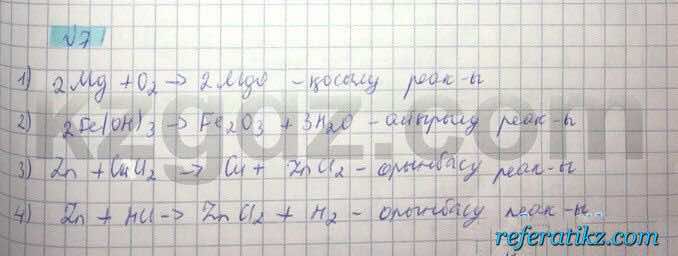 √7
1) 2Mg + O₂ → 2MgO - қосылу реак-ы
2) 2Fe(OH)₃ → Fe₂O₃ + 3H₂O - айырылу реак-ы
3) Zn + CuCl₂ → Cu + ZnCl₂ - орынбасу реак-ы
4) Zn + HCl → ZnCl₂ + H₂ - орынбасу реак-ы
kzgdz.com
referatikz.com